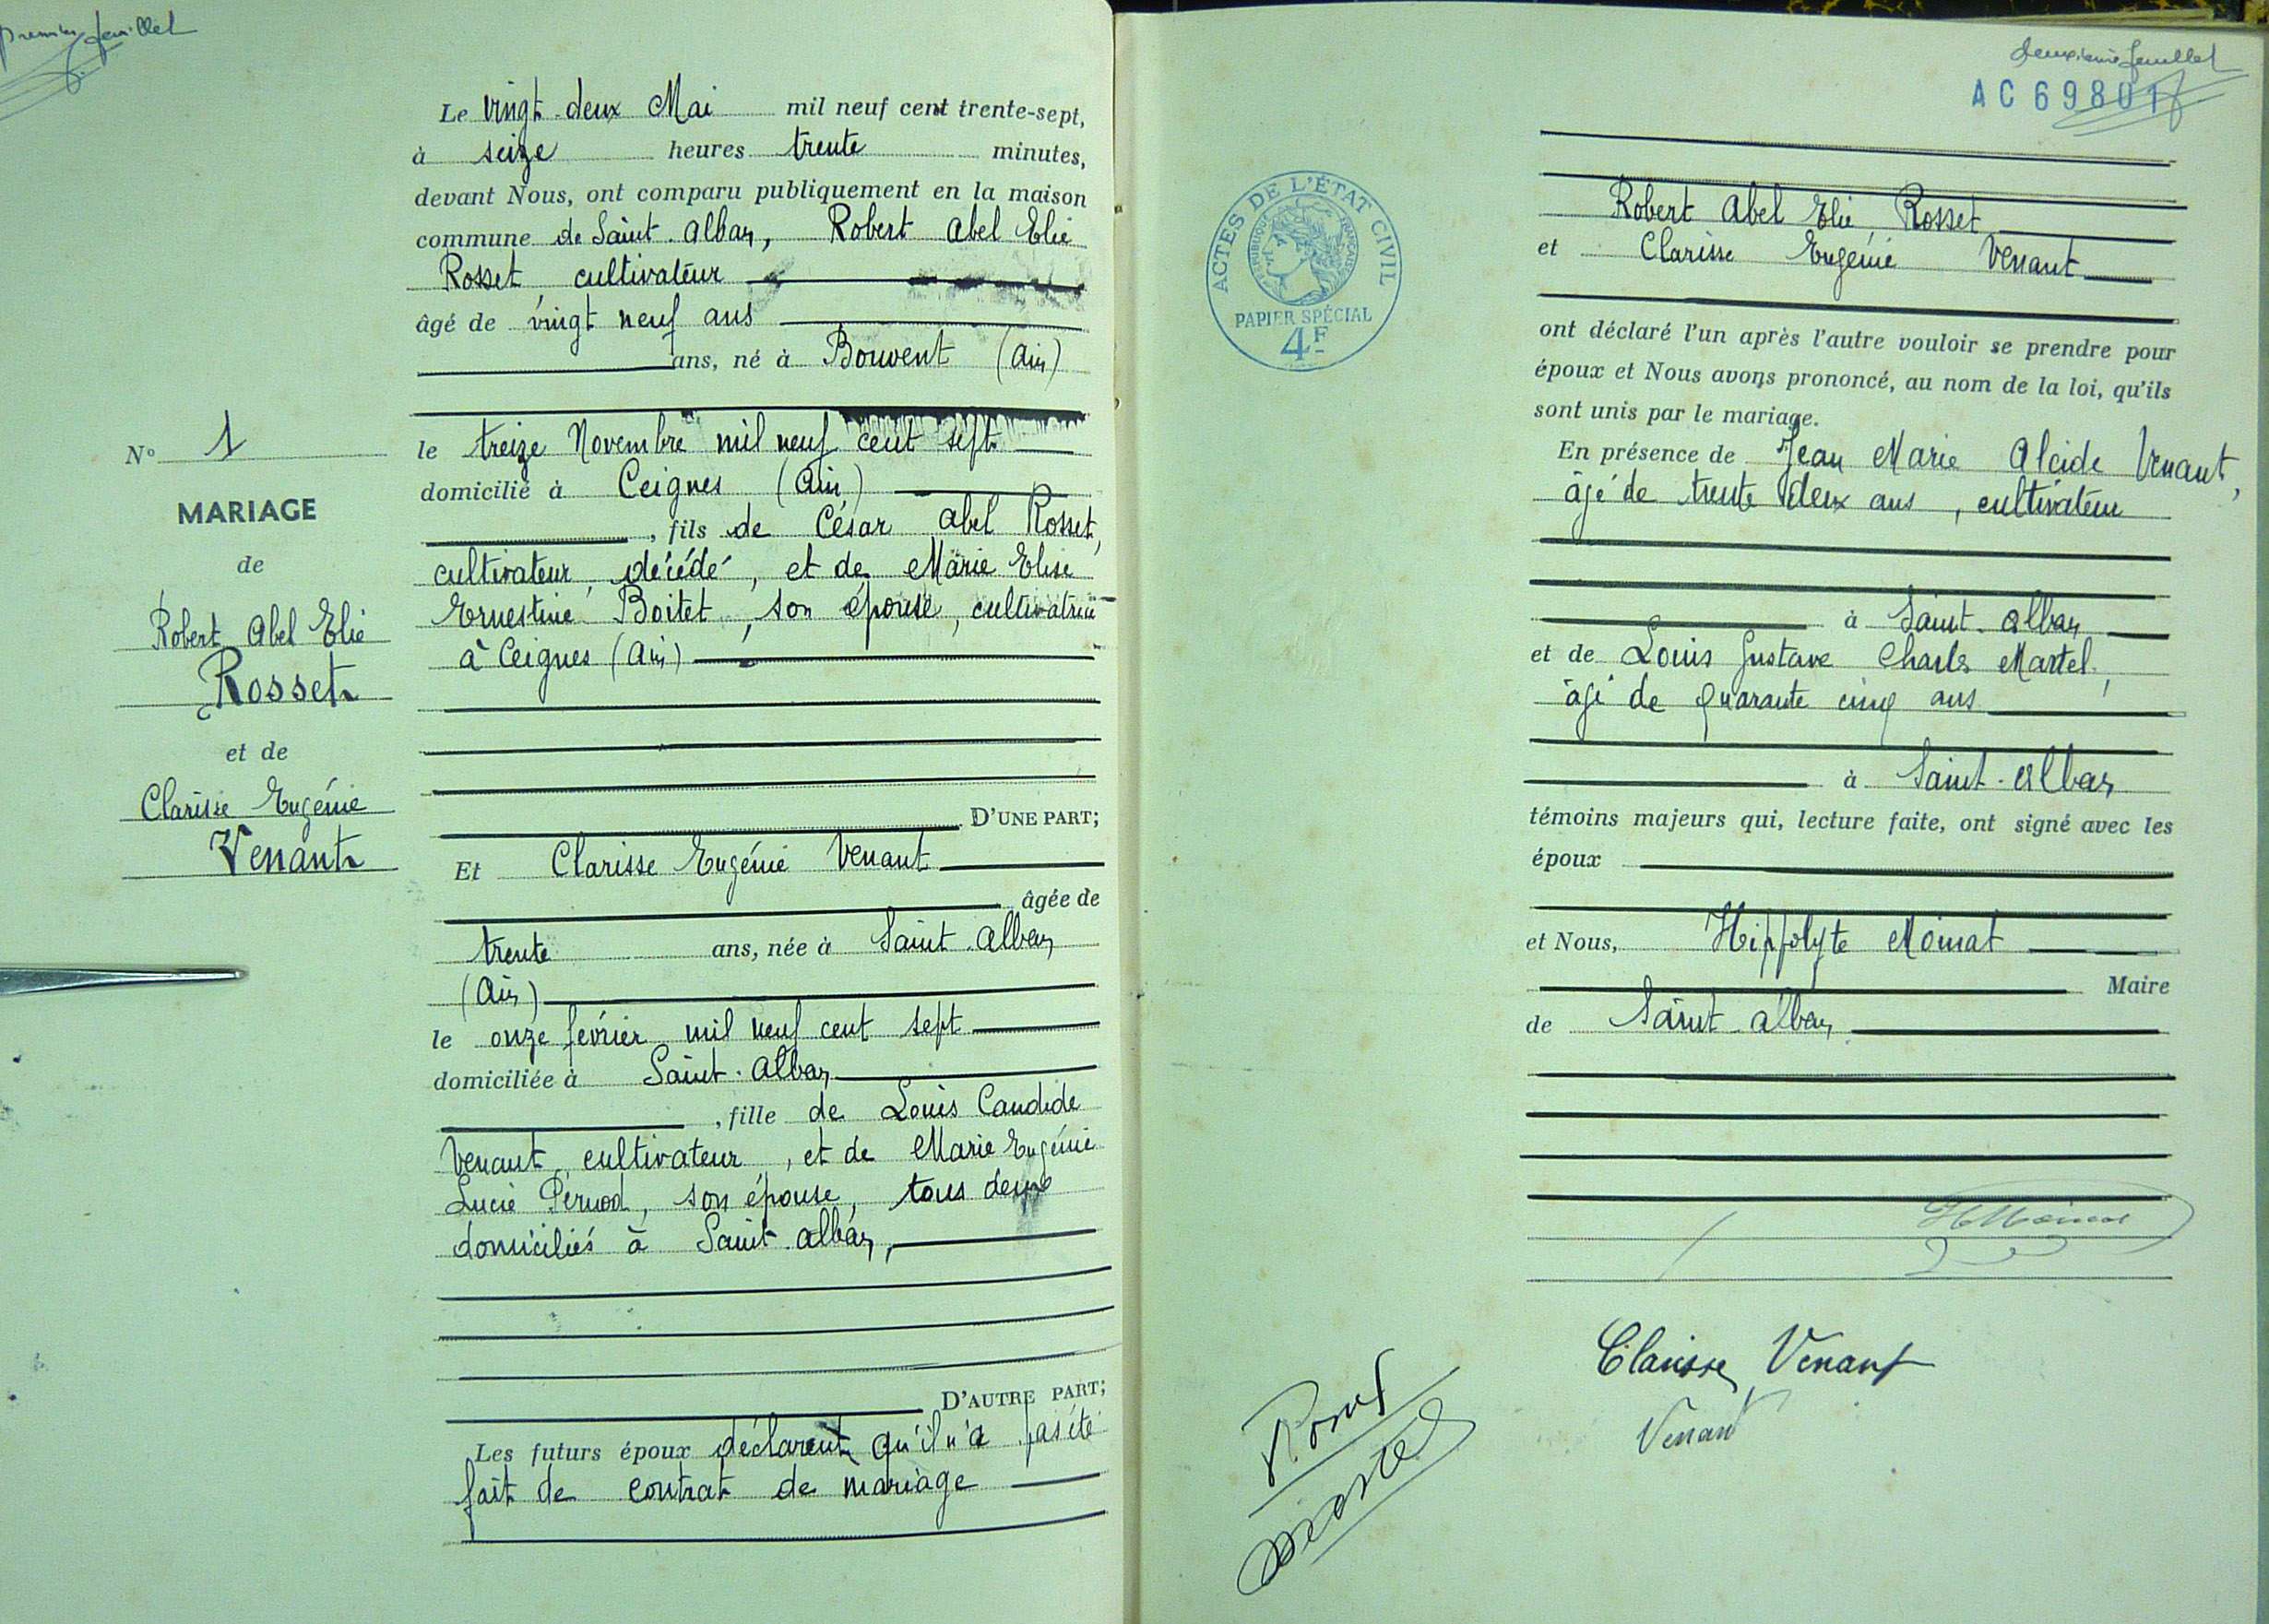 premier feuillet
Le vingt-deux Mai mil neuf cent trente-sept,
à seize heures trente minutes,
devant Nous, ont comparu publiquement en la maison
commune de Saint-Alban, Robert Abel Elie
Rosset, cultivateur
âgé de vingt neuf ans
ans, né à Bouvent (Ain)
le treize Novembre mil neuf cent sept
domicilié à Ceignes (Ain)
, fils de César Abel Rosset,
cultivateur, décédé, et de Marie Elise
Ernestine Boitet, son épouse, cultivatrice
à Ceignes (Ain)
D'UNE PART;
Et Clarisse Eugénie Venant
âgée de
trente ans, née à Saint-Alban
(Ain)
le onze février mil neuf cent sept
domiciliée à Saint-Alban
, fille de Louis Candide
Venant, cultivateur, et de Marie Eugénie
Lucie Pernod, son épouse, tous deux
domiciliés à Saint-Alban,
D'AUTRE PART;
Les futurs époux déclarent qu'il n'a pas été
fait de contrat de mariage
N° 1
MARIAGE
de
Robert Abel Elie
Rosset
et de
Clarisse Eugénie
Venant
deuxième feuillet
AC 69801
ACTES DE L'ÉTAT CIVIL
RÉPUBLIQUE FRANÇAISE
PAPIER SPÉCIAL
4F
Robert Abel Elie Rosset
et Clarisse Eugénie Venant
ont déclaré l'un après l'autre vouloir se prendre pour
époux et Nous avons prononcé, au nom de la loi, qu'ils
sont unis par le mariage.
En présence de Jean Marie Alcide Venant,
âgé de trente deux ans, cultivateur
à Saint-Alban
et de Louis Gustave Charles Martel,
âgé de quarante cinq ans
à Saint-Alban
témoins majeurs qui, lecture faite, ont signé avec les
époux
et Nous, Hippolyte Moinat
Maire
de Saint-Alban
HMoinat
Clarisse Venant
Venant